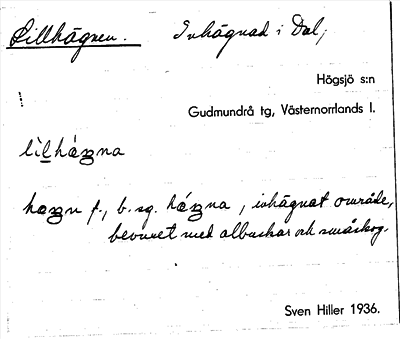 Lillhägnen. Inhägnad i Dal,
Högsjö s:n
Gudmundrå tg, Västernorrlands l.
lìlháʒna
haʒn f., b. sg. háʒna, inhägnat område,
bevuxet med albuskar och småskog.
Sven Hiller 1936.